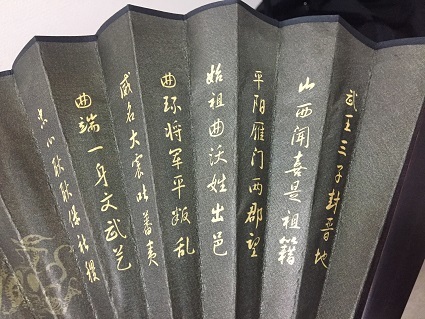 武王三子封晋地
山西闻喜是祖籍
平阳雁门两郡望
始祖曲沃姓出邑
曲环将军平叛乱
威名大震吐蕃夷
曲端一身文武艺
忠心耿耿保社稷